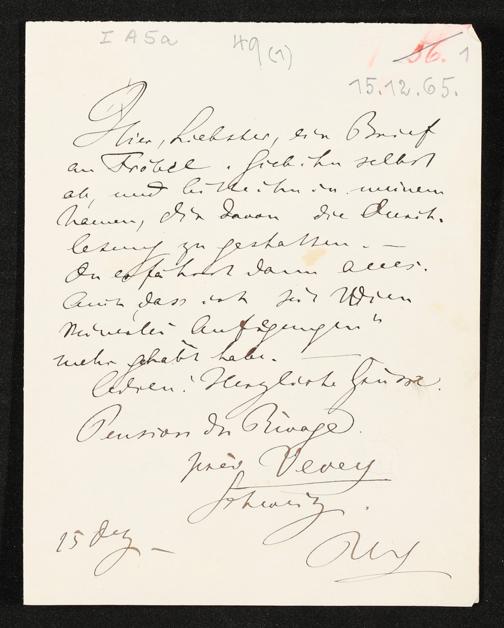 I A5a 49 (1) 56. 1
15.12.65.
Hier, Liebster, ein Brief
an Fröbel. Gieb ihn selbst
ab, und bitte ihn in meinem
Namen, Dir davon die Durch-
lesung zu gestatten. —
Du erfährst dann alles.
Auch, dass ich seit Wien
keinerlei Aufregungen"
mehr gehabt habe. —
Adieu! Herzliche Grüsse.
Pension du Rivage.
près Vevey
Schweiz.
15 Dez —